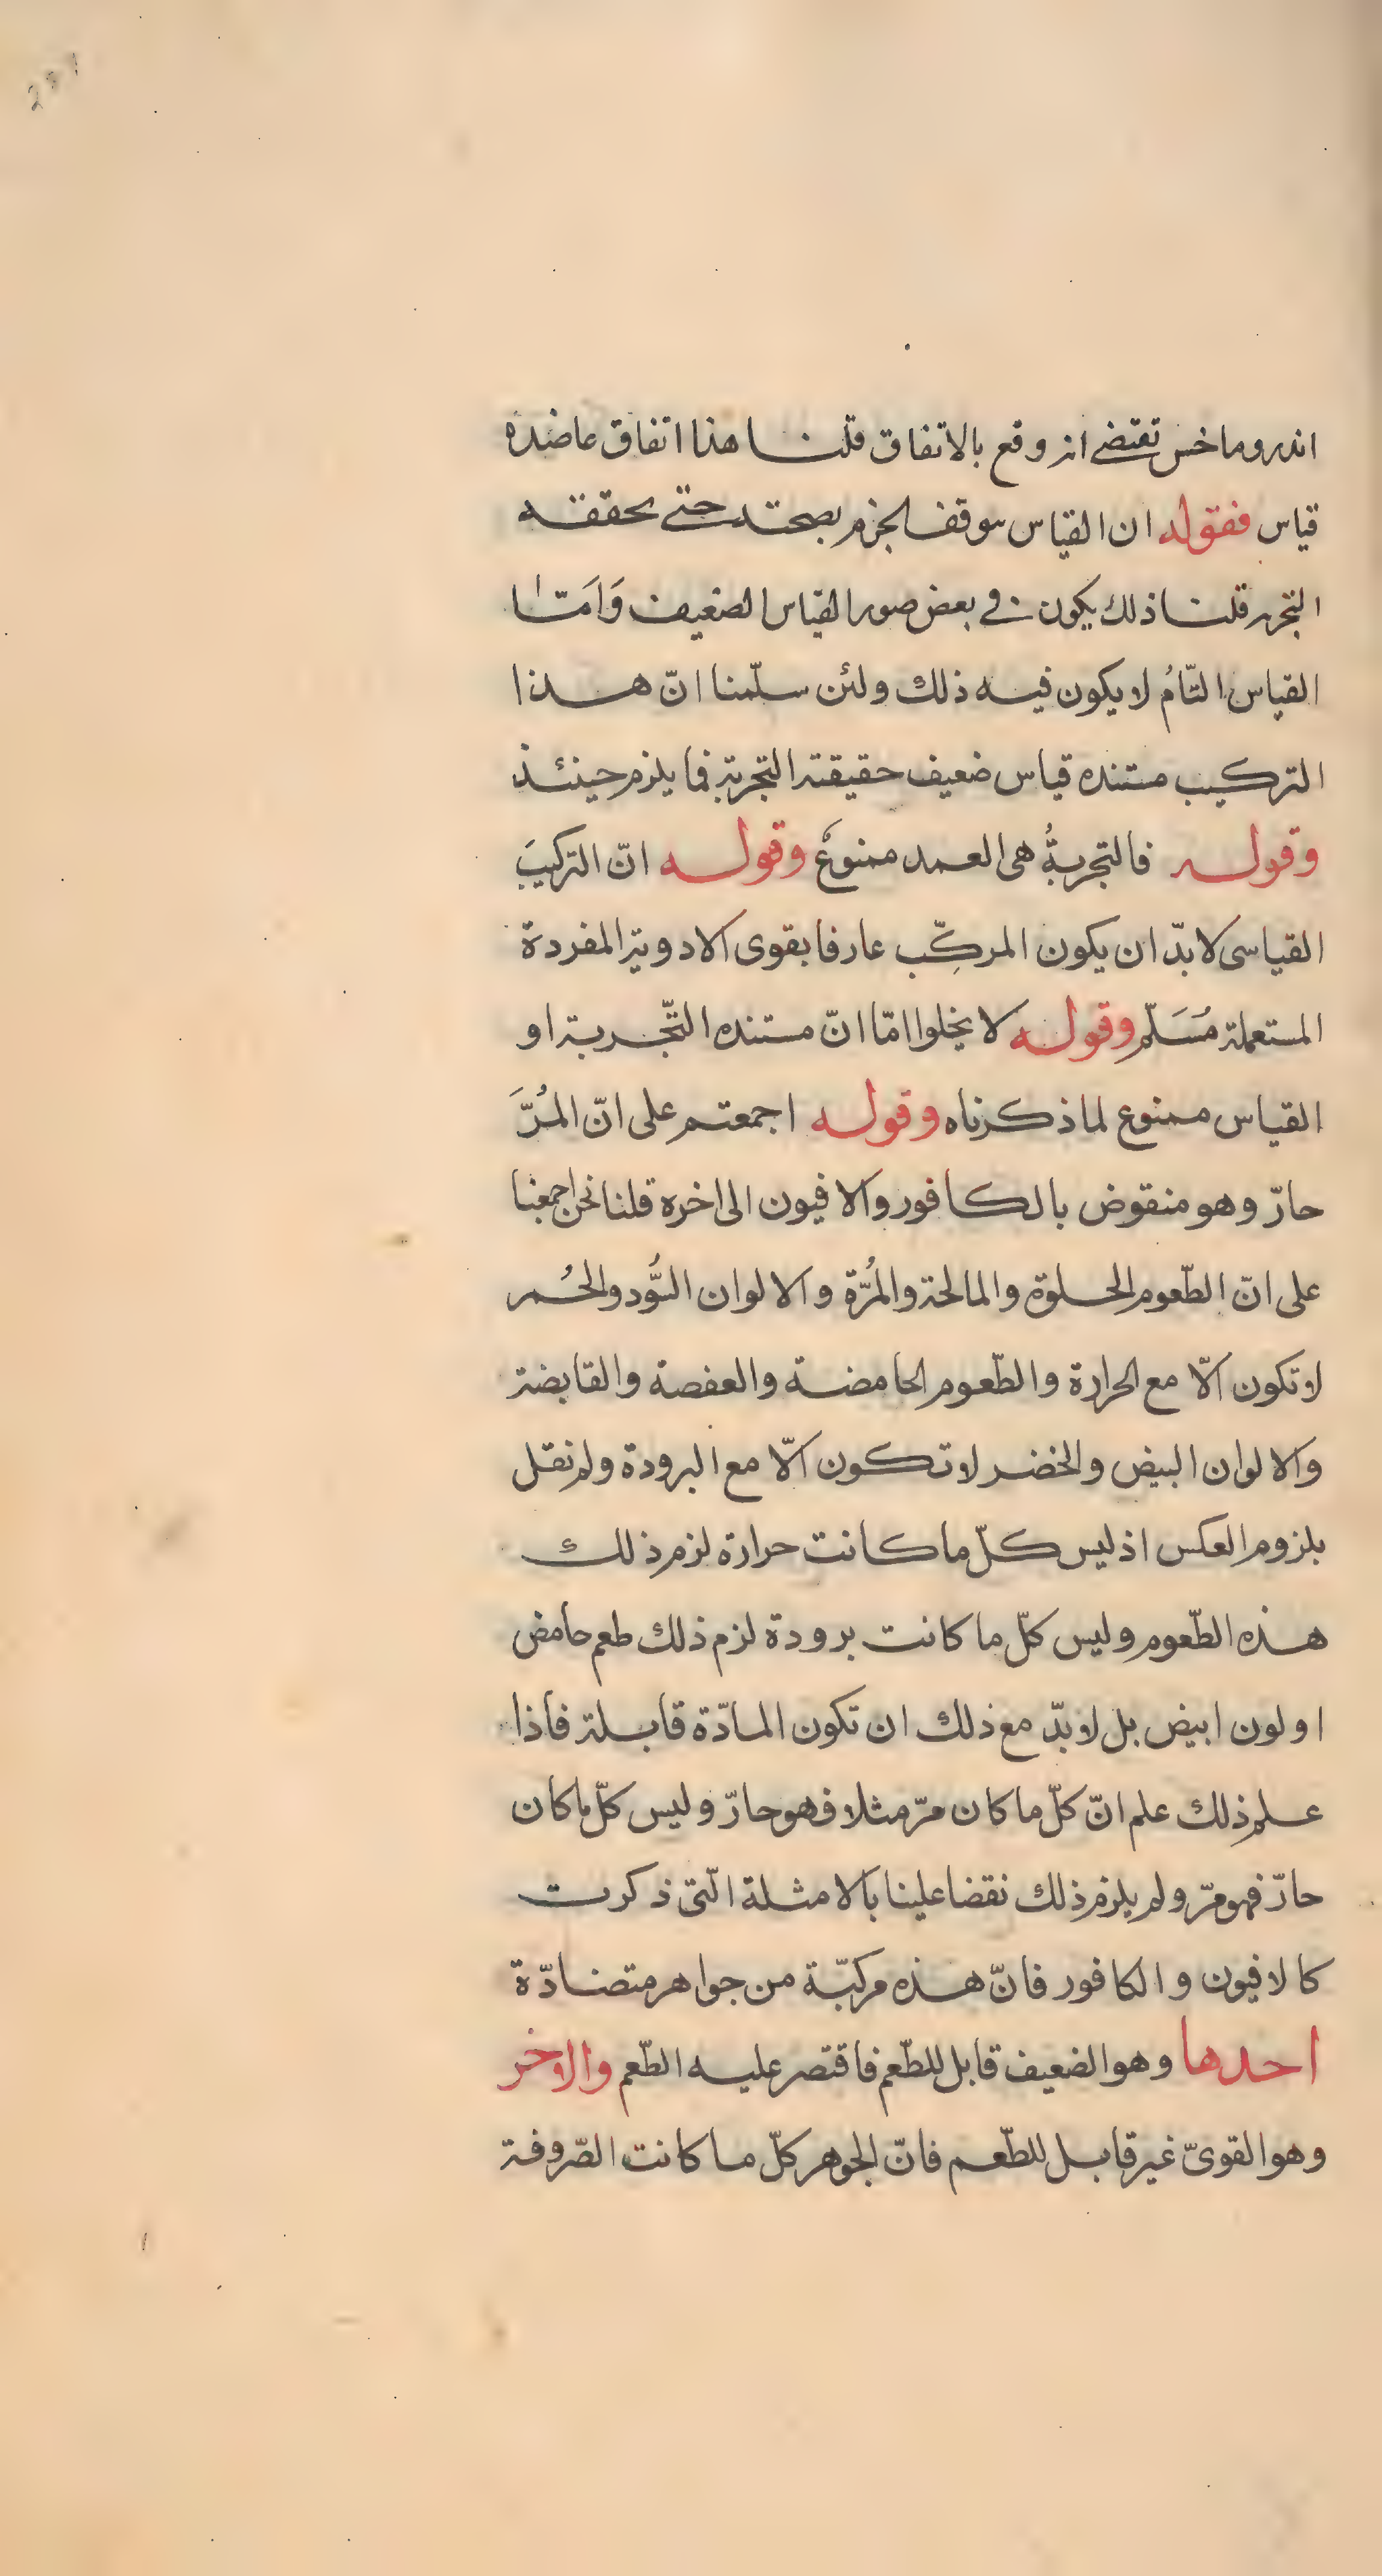 اندروماخس تقتضى انه وقع بالاتفاق قلنا هذا اتفاق عاضده
قياس فقوله ان القياس يتوقف الجزم بصحته حتى تحققه
التجربه قلنا ذلك يكون فى بعض صور القياس الضعيف وَاَمّا
القياس التّامُ لا يكون فيه ذلك ولئن سلّمنا انّ هذا
التركيب مستنده قياس ضعيف حقيقته التجربة فما يلزم حينئذ
وقوله فالتجربةُ هى العمد ممنوعٌ وقوله انّ التركيبَ
القياسى لا بدّ ان يكون المركِّب عارفا بقوى الادوية المفردة
المستعملة مُسَلّم وقوله لا يخلوا امّا انّ مستنده التّجربة او
القياس ممنوع لما ذكرناه وقوله اجمعتم على انّ المُرَّ
حارّ وهو منقوض بالكافور والافيون الى اخره قلنا نحن اجمعنا
على انّ الطّعوم الحلوة والمالحة والمُرّة والالوان السُّود والحُمر
لا تكون الّا مع الحرارة والطّعوم الحامضة والعفصة والقابضة
والالوان البيض والخضر لا تكون الّا مع البرودة ولم نقل
بلزوم العكس اذ ليس كلّ ما كانت حرارة لزم ذلك
هذه الطّعوم وليس كلّ ما كانت برودة لزم ذلك طعم حامض
او لون ابيض بل لا بدّ مع ذلك ان تكون المادّة قابلة فاذا
علم ذلك علم انّ كلّ ما كان مرّ مثلا فهو حارّ وليس كلّ ما كان
حارّ فهو مرّ ولم يلزم ذلك نقضا علينا بالامثلة الّتى ذكرت
كالافيون والكافور فانّ هذه مركبّة من جواهر متضادّة
احدها وهو الضعيف قابل للطّعم فاقتصر عليه الطّعم والاخر
وهو القوىّ غير قابل للطّعم فانّ الجوهر كلّ ما كانت الصّروفة